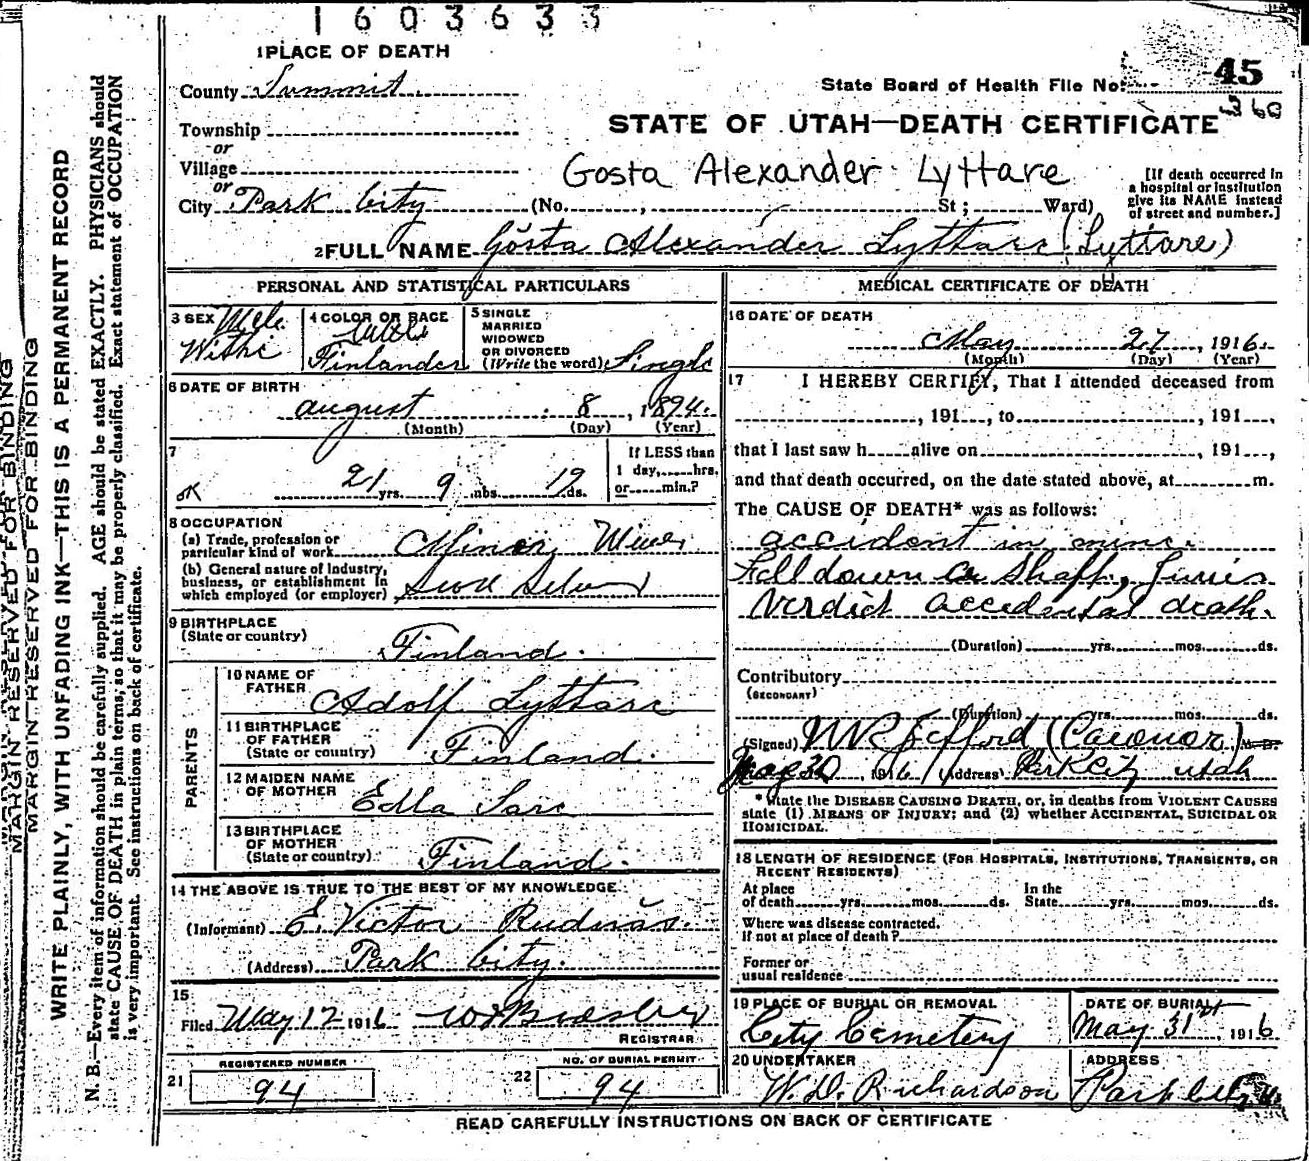 1603633
1 PLACE OF DEATH
County Summit
State Board of Health File No. 45
360
Township
STATE OF UTAH—DEATH CERTIFICATE
or
Village
Gosta Alexander Lyttare
[If death occurred in
a hospital or institution
give its NAME instead
of street and number.]
or
City Park City (No. , St ; Ward)
2 FULL NAME Gösta Alexander Lyttare (Lyttare)
PERSONAL AND STATISTICAL PARTICULARS
3 SEX Male
4 COLOR OR RACE White
Finlander
5 SINGLE
MARRIED
WIDOWED
OR DIVORCED
(Write the word) Single
6 DATE OF BIRTH
august 8, 1894.
(Month) (Day) (Year)
7
OK
21 yrs. 9 mos. 19 ds.
If LESS than
1 day, hrs.
or min.?
8 OCCUPATION
(a) Trade, profession or
particular kind of work Miner
(b) General nature of industry,
business, or establishment in
which employed (or employer)
9 BIRTHPLACE
(State or country)
Finland.
PARENTS
10 NAME OF
FATHER
Adolf Lyttare
11 BIRTHPLACE
OF FATHER
(State or country) Finland.
12 MAIDEN NAME
OF MOTHER
Edla
13 BIRTHPLACE
OF MOTHER
(State or country) Finland.
14 THE ABOVE IS TRUE TO THE BEST OF MY KNOWLEDGE
(Informant) E. Victor Rudnäs.
(Address) Park City.
15
Filed May 1916
REGISTRAR
REGISTERED NUMBER
21 94
NO. OF BURIAL PERMIT
22 94
MEDICAL CERTIFICATE OF DEATH
16 DATE OF DEATH
May 27, 1916.
(Month) (Day) (Year)
17 I HEREBY CERTIFY, That I attended deceased from
, 191 , to , 191 ,
that I last saw h alive on , 191 ,
and that death occurred, on the date stated above, at m.
The CAUSE OF DEATH* was as follows:
accident in mine.
Fell down a shaft, Juries
Verdict accidental death.
(Duration) yrs. mos. ds.
Contributory
(SECONDARY)
(Duration) yrs. mos. ds.
(Signed) (Coronor) M. D.
May 30, 1916 (Address) Park City Utah
* State the DISEASE CAUSING DEATH, or, in deaths from VIOLENT CAUSES
state (1) MEANS OF INJURY; and (2) whether ACCIDENTAL, SUICIDAL OR
HOMICIDAL.
18 LENGTH OF RESIDENCE (FOR HOSPITALS, INSTITUTIONS, TRANSIENTS, OR
RECENT RESIDENTS)
At place
of death yrs. mos. ds.
In the
State yrs. mos. ds.
Where was disease contracted,
If not at place of death?
Former or
usual residence
19 PLACE OF BURIAL OR REMOVAL
City Cemetery
DATE OF BURIAL
May 31st, 1916
20 UNDERTAKER
W. D. Richardson
ADDRESS
Park City
READ CAREFULLY INSTRUCTIONS ON BACK OF CERTIFICATE
MARGIN RESERVED FOR BINDING
MARGIN RESERVED FOR BINDING
WRITE PLAINLY, WITH UNFADING INK—THIS IS A PERMANENT RECORD
N. B.—Every item of information should be carefully supplied. AGE should be stated EXACTLY. PHYSICIANS should
state CAUSE OF DEATH in plain terms, so that it may be properly classified. Exact statement of OCCUPATION
is very important. See instructions on back of certificate.